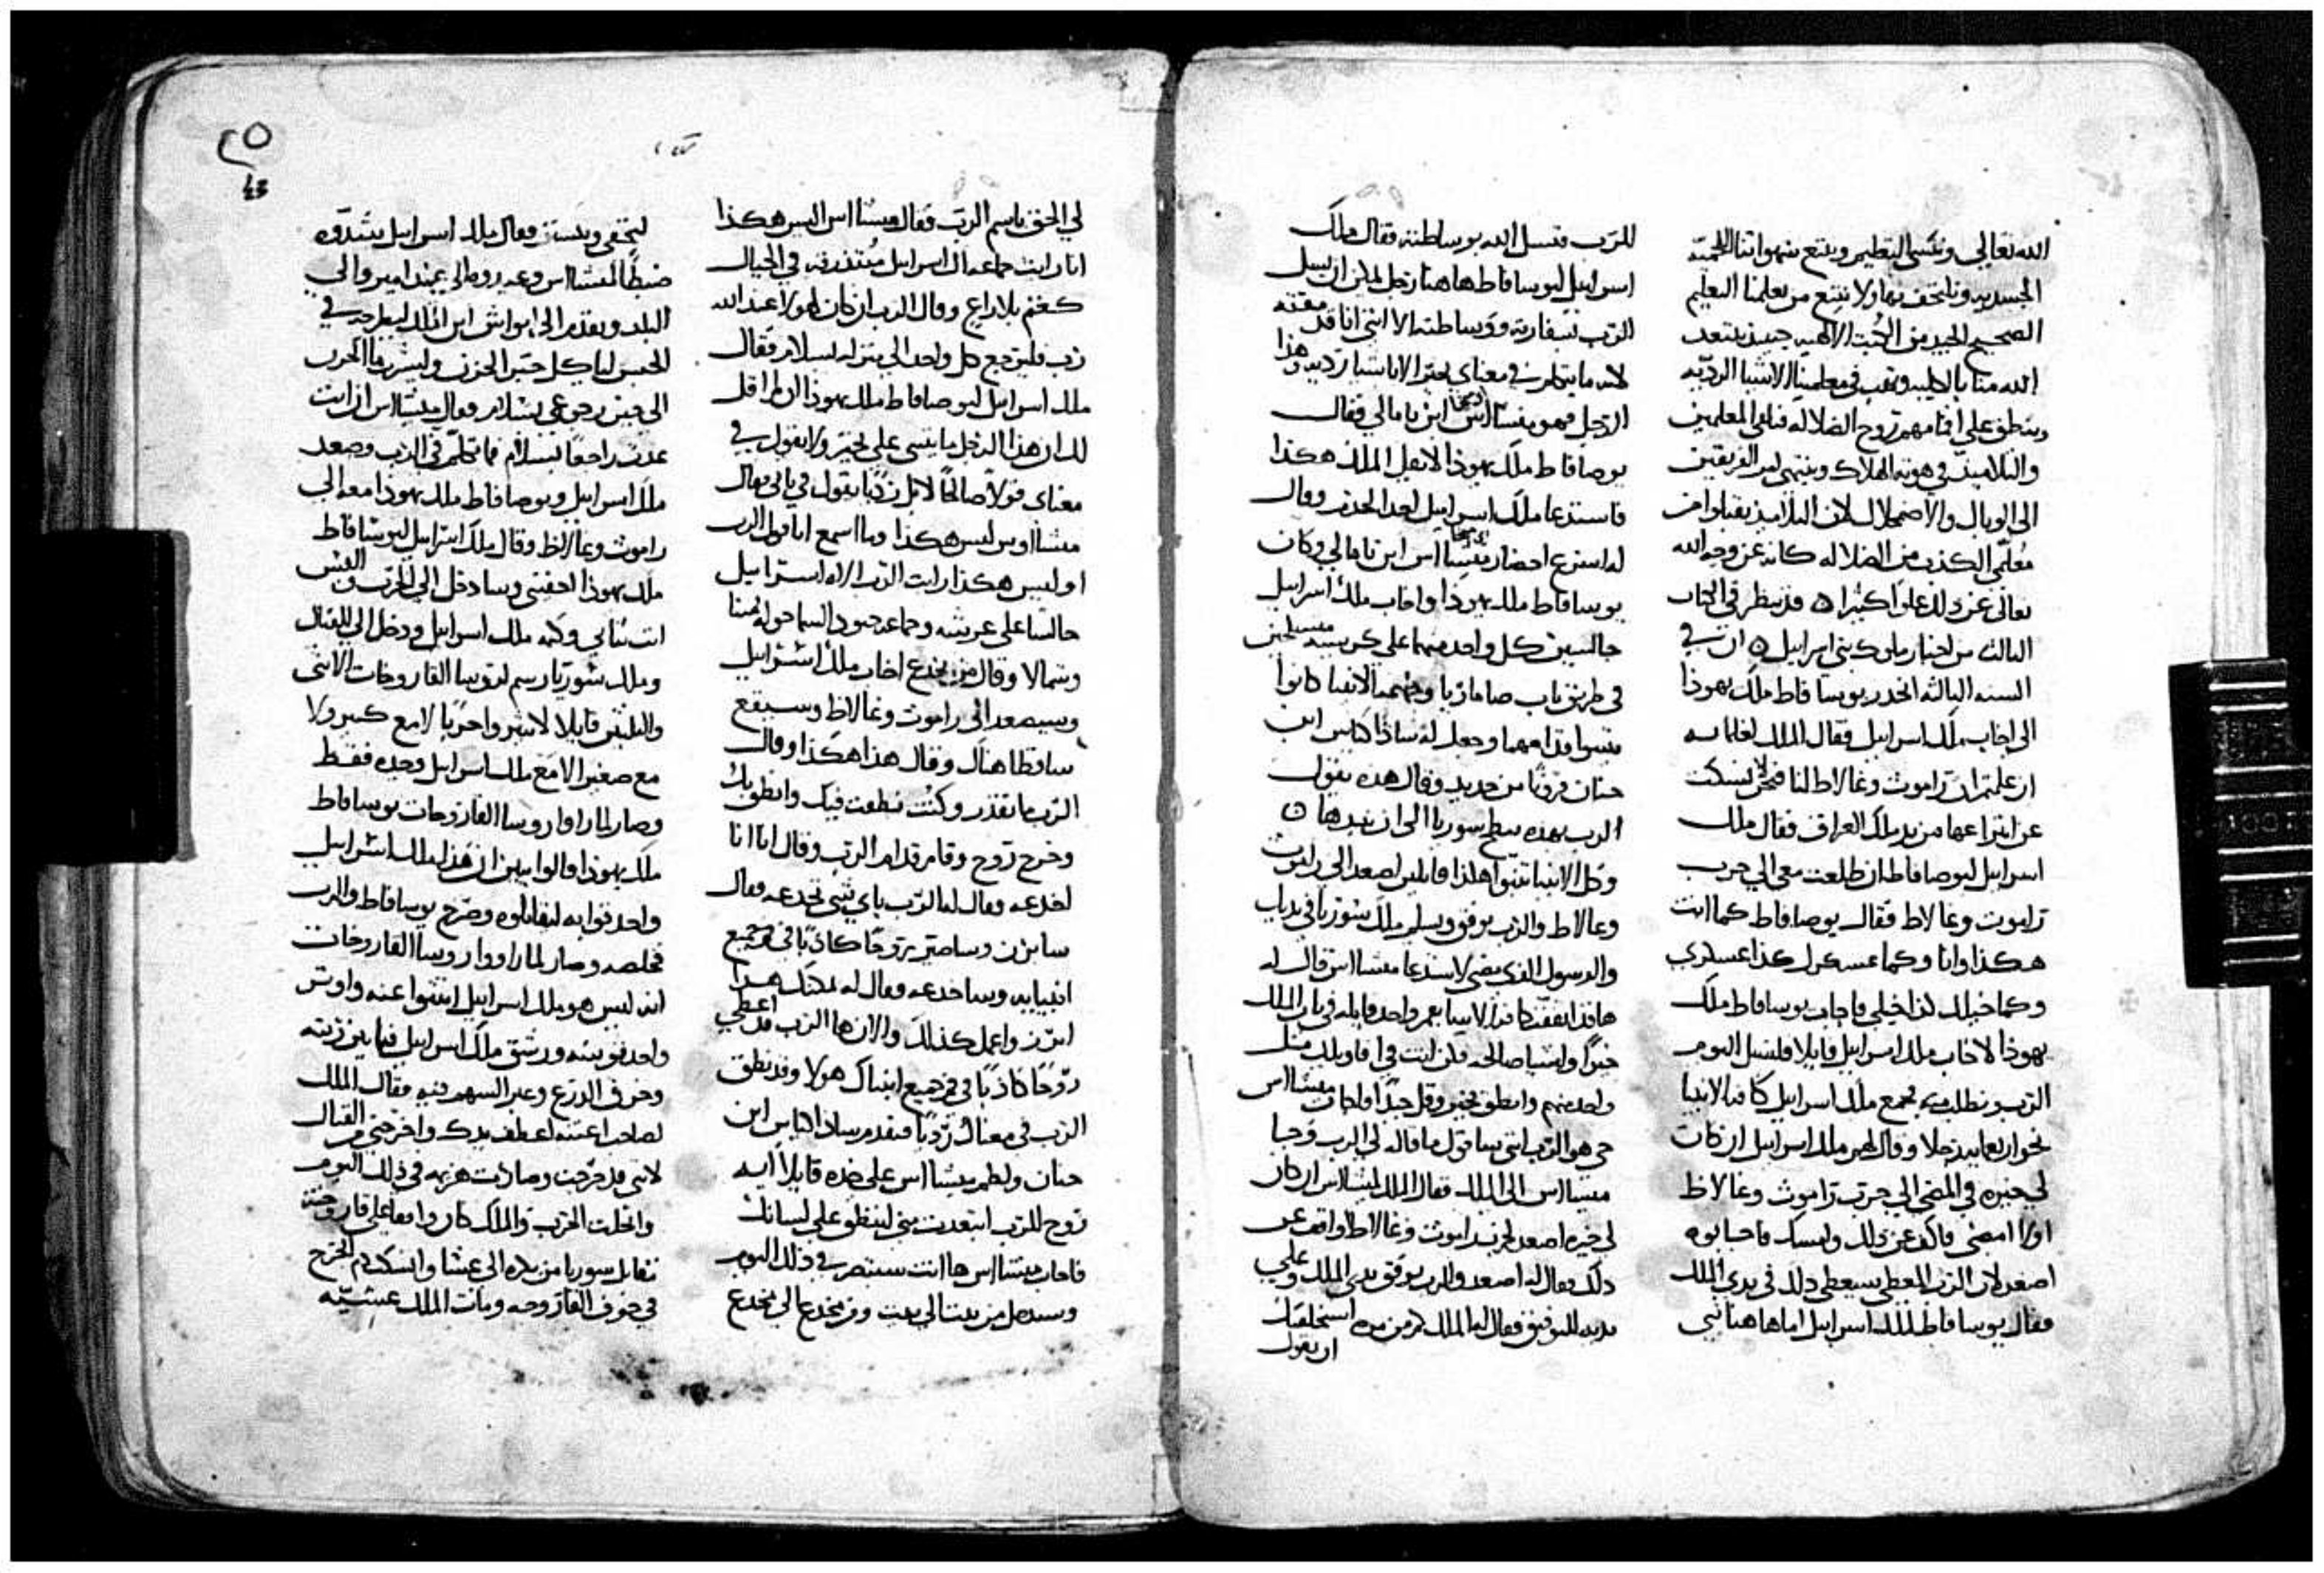 الله تعالى ونكسى التطهير ونتبع شهواتنا اللحميه
الجسديه ونلتحف بها ولا نتبع من يعلمنا التعليم
الصحيح الجيد من الكتب الالاهيه حينيذ يبتعد
الله منا بالكليه ويهب في معلمينا الاشيا الرديه
وينطق على افواههم روح الضلاله فيلقى المعلمين
والتلاميذ في هوته الهلاك وينتهى امر الفريقين
الى الوبال والاضمحلال لان التلاميذ يقبلوا من
معلمى الكذب من الضلاله كانه عن وجه الله
تعالى عن ذلك علوا كثيرا ٥ قد ينظر في الكتاب
الثالث من اخبار ملوك بني اسراييل ٥ ان في
السنه الثالثه انحدر يوسافاط ملك يهوذا
الى اخاب ملك اسراييل فقال الملك لغلمانه
ان علمتم ان راموث وغالاط لنا فنحن لا نسكت
عن انتزاعها من يد ملك العراق فقال ملك
اسراييل ليوصافاط ان طلعت معى الى حرب
راموث وغالاط فقال يوصافاط كما انت
هكذا وانا وكما عسكرك كذا عسكري
وكما خيلك كذا خيلي فاجاب يوسافاط ملك
يهوذا لاخاب ملك اسراييل قايلا فلنسل اليوم
الرب ونطلب منه فجمع ملك اسراييل كافة الانبيا
نحو اربعمايه رجلا وقال لهم ملك اسراييل ان كان
لي خيره في المضي الي حرب راموث وغالاظ
اولا امضى فاكف عن ذلك وامسك فاجابوه
اصعد لان الرب المعطي سيعطى ذلك في يدى الملك
فقال يوسافاط لملك اسراييل اما هاهنا نبي
للرب فنسل الله بوساطته فقال ملك
اسراييل ليوسافاط هاهنا رجل يمكن ان يسل
الرب بسفارته ووساطته الا اننى انا قد مقته
لانه ما يتكلم في معناي بخير الا باشيا رديه وهذا
الرجل فهو ميشااس ابن يامالي فقال
يوصافاط ملك يهوذا لا يقل الملك هكذا
فاستدعا ملك اسراييل احد الخدم وقال
له اسرع احضار ميشااس ابن يامالي وكان
يوسافاط ملك يهوذا واخاب ملك اسراييل
جالسين كل واحد منهما على كرسيه متسلحين
في طريق باب صاماريا وجميع الانبيا كانوا
يتنبوا قدامهما وجعل له ساذاكياس ابن
حنان قرونا من حديد وقال هذه يقول
الرب بهذه تنطح سوريا الى ان تبيدها ٥
وكل الانبيا تنبوا هكذا قايلين اصعد الى راموث
وغالاط والرب يوفق ويسلم ملك سوريا في يديك
والرسول الذي مضى لاستدعا ميشااس قال له
هاقد اتفقت كافة الانبيا بفم واحد قايله في باب الملك
خيرا واشيا صالحه فكن انت في اقاويلك مثل
واحد منهم وانطق بخير وقل جيدا فاجاب ميشااس
حي هو الرب انني ساقول ما قاله لي الرب وجا
ميشااس الى الملك فقال الملك لميشااس ان كان
لي خيره اصعد لحرب راموث وغالاط او اقف عن
ذلك فقال له اصعد والرب يوفق يدي الملك وعلى
يديه للتوفيق فقال له الملك كم من مره استحلفتك
ان تقول
لي الحق باسم الرب فقال ميشااس اليس هكذا
انا رايت جماعه ال اسراييل متبذرين في الجبال
كغنم بلا راع وقال الرب ان كان لهولا عند الله
رب فليرجع كل واحد الي منزله بسلام فقال
ملك اسراييل ليوصافاط ملك يهوذا الم اقل
لك ان هذا الرجل ما يتنبى علي بخير ولا يقول في
معناي قولا صالحا لا بل رديا يقول في بابى فقال
ميشااوس ليس هكذا وما اسمع انا قول الرب
اوليس هكذا رايت الرب الاه استراييل
جالسا على عرشه وجماعه جنود السما حوله يمينا
وشمالا وقال من يخدع اخاب ملك استراييل
وسيصعد الى راموث وغالاظ وسيقع
ساقطا هناك وقال هذا هكذا وقال
الرب ما تقدر وكنت نطقت فيك وانطق بك
وخرج روح وقام قدام الرب وقال انا انا
اخدعه وقال له الرب باي شي تخدعه فقال
سابرز وساصير روحا كاذبا في فم جميع
انبيايه وساخدعه فقال له يمكنك هذا
ابرز واعمل كذلك والان ها الرب قد اعطى
روحا كاذبا في فم جميع انبياك هولا وقد نطق
الرب في معناك رديا فتقدم ساذاكياس ابن
حنان ولطم ميشااس على خده قايلا ايه
روح للرب ابتعدت مني لينطق على لسانك
فاجاب ميشااس ها انت ستبصر في ذلك اليوم
وستدخل من بيت الي بيت ومن مخدع الي مخدع
٢٥
43
لتختفي وتستتر وقال ملك اسراييل شدوه
ضبطا لميشااس وعه روه الى عند امير والي
البلد وتقدم الى ابواش ابن الملك ليطرحه في
الحبس لياكل خبز الحزن وليشرب ما الكرب
الى حين رجوعي بسلام فقال ميشااس ان انت
عدت راجعا بسلام فما تكلم في الرب وصعد
ملك اسراييل ويوصافاط ملك يهوذا معه الي
راموث وغالاظ وقال ملك استراييل ليوشافاط
ملك يهوذا اخفني وسادخل الي الحرب والبس
انت ثيابي وكته ملك اسراييل ودخل الي القتال
وملك سوريا رسم لروسا القاروخات الاثنى
والثلثين قايلا لا تشيروا حربا لا مع كبير ولا
مع صغير الا مع ملك اسراييل وحده فقط
وصار لما راوا روسا القاروخات يوسافاط
ملك يهوذا قالوا يبين ان هذا ملك اشراييل
واحدقوا به ليقاتلوه وصرخ يوسافاط والرب
خلصه وصار لما راووا روسا القاروخات
انه ليس هو ملك اسراييل انثنوا عنه واوتر
واحد قوسه ورشق ملك اسراييل فيما بين ريته
وخرق الدرع وعبر السهم فيه فقال الملك
لصاحب اعنته اعطف يدك واخرجني من القتال
لانني قد جرحت وصارت هزيمه في ذلك اليوم
وانحلت الحرب والملك كان واقفا على قاروخته
تقابل سوريا من بكره الى عشا وانسكب دم الجرح
في جوف القاروخه ومات الملك عشيه